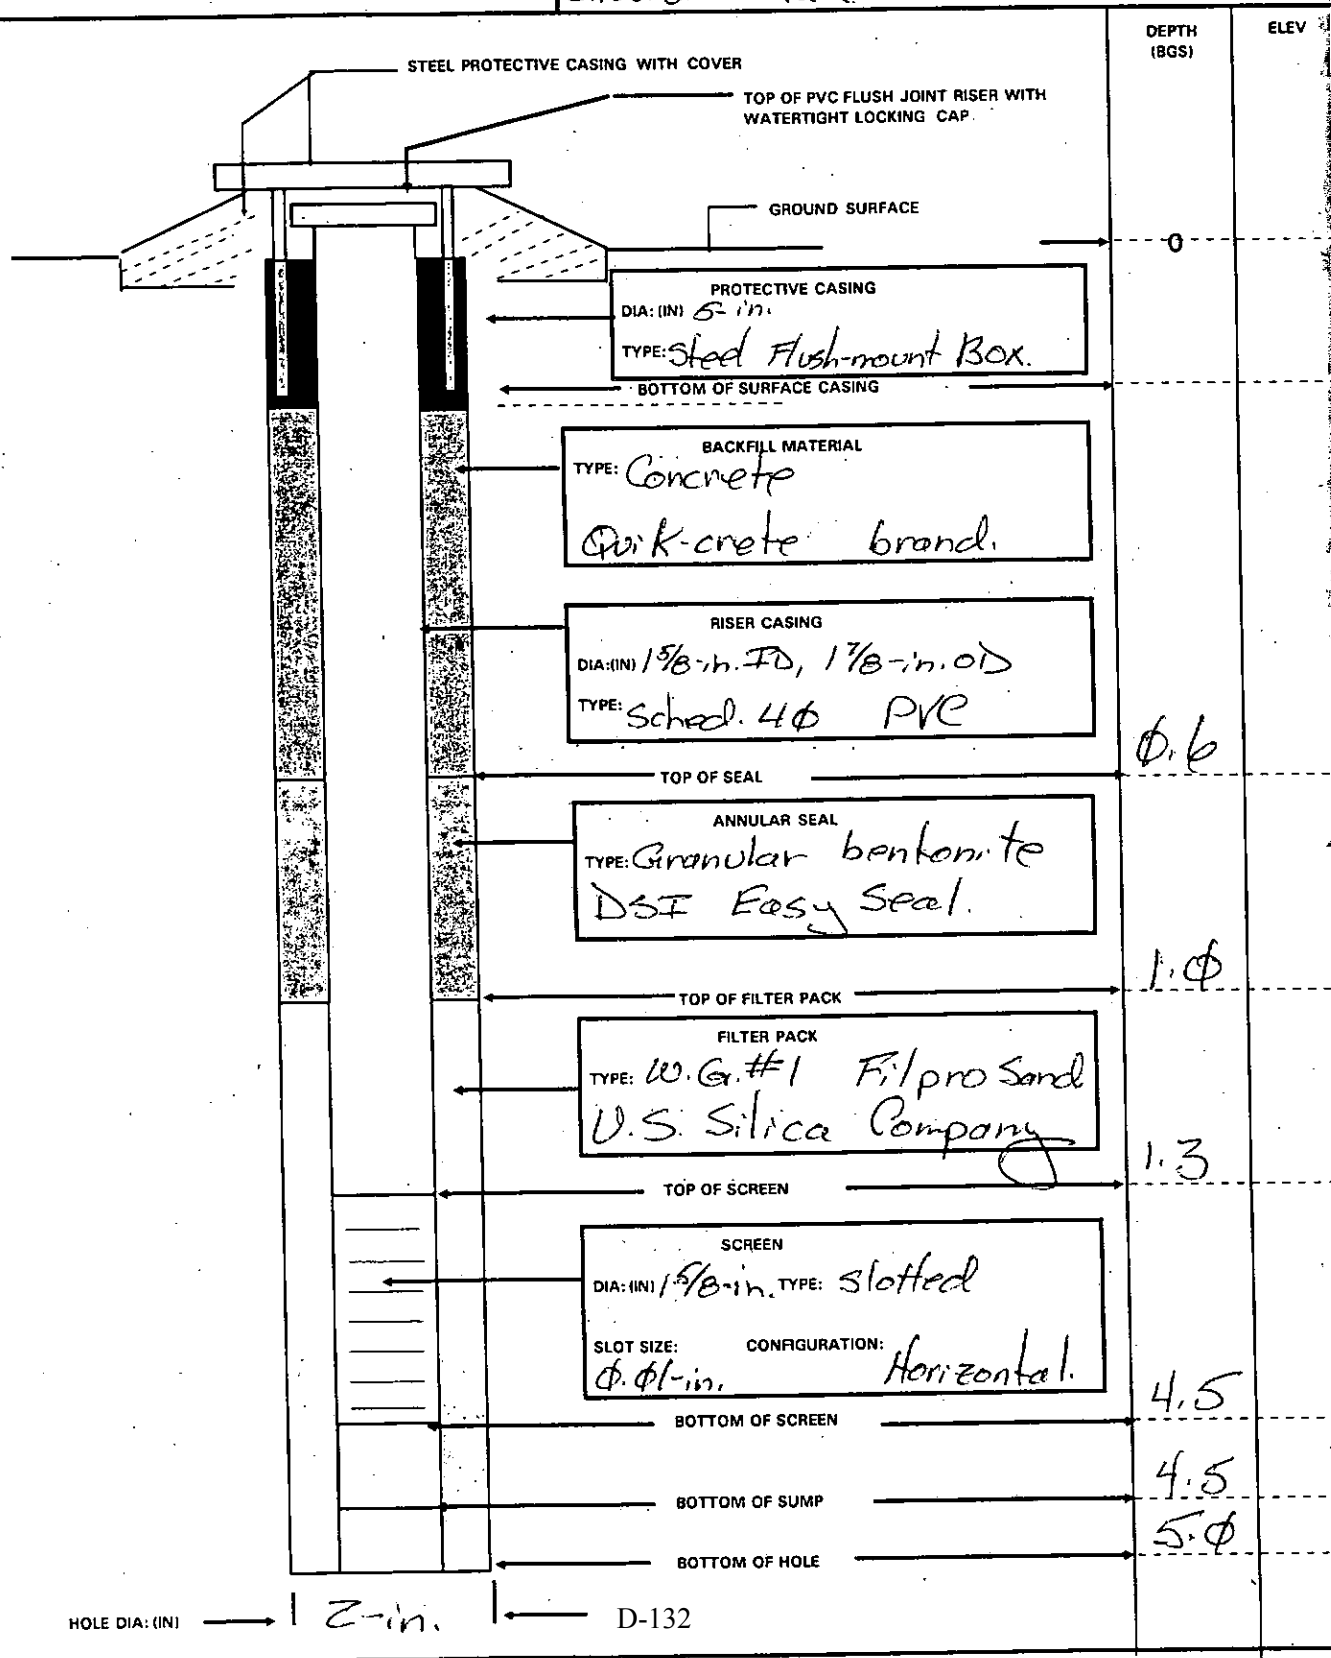 DEPTH
(BGS)
ELEV
STEEL PROTECTIVE CASING WITH COVER
TOP OF PVC FLUSH JOINT RISER WITH
WATERTIGHT LOCKING CAP
GROUND SURFACE
0
PROTECTIVE CASING
DIA: (IN) 5-in.
TYPE: Steel Flush-mount Box.
BOTTOM OF SURFACE CASING
BACKFILL MATERIAL
TYPE: Concrete
Quik-crete brand.
RISER CASING
DIA:(IN) 1 5/8-in. ID, 1 7/8-in. OD
TYPE: Sched. 4Ø PVC
Ø.6
TOP OF SEAL
ANNULAR SEAL
TYPE: Granular bentonite
DSI Easy Seal.
1.Ø
TOP OF FILTER PACK
FILTER PACK
TYPE: W.G. #1 Filpro Sand
U.S. Silica Company
1.3
TOP OF SCREEN
SCREEN
DIA: (IN) 1 5/8-in. TYPE: Slotted
SLOT SIZE: CONFIGURATION:
Ø.Ø1-in. Horizontal.
4.5
BOTTOM OF SCREEN
4.5
BOTTOM OF SUMP
5.Ø
BOTTOM OF HOLE
HOLE DIA: (IN) 2-in. D-132